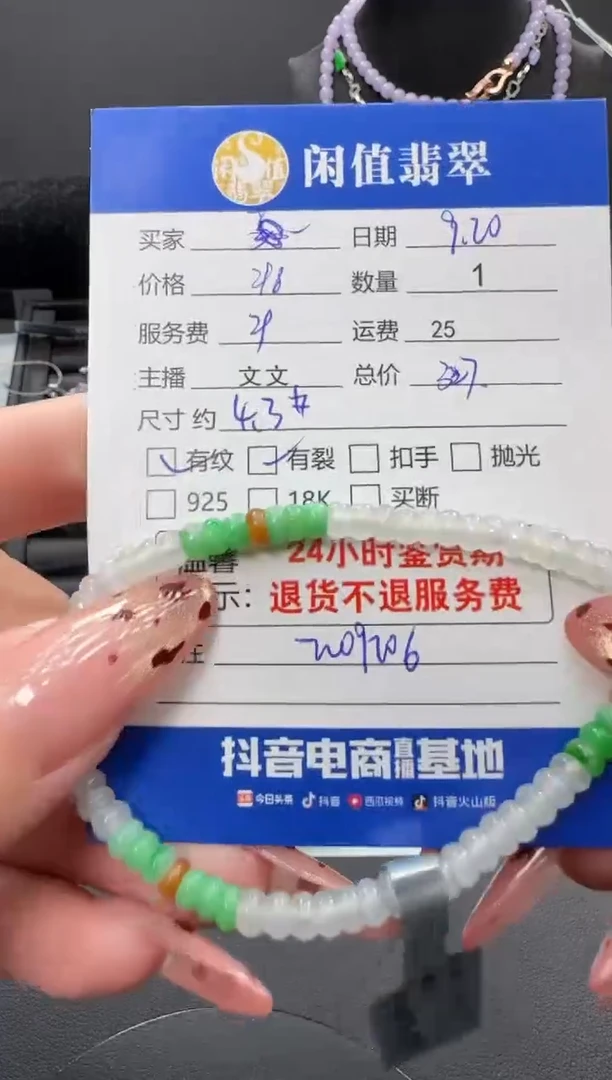 闲值翡翠
买家 日期 9.20
价格 数量 1
服务费 运费 25
主播 文文 总价
尺寸 约 4.3#
有纹 有裂 扣手 抛光
925 18K 买断
温馨 24小时鉴赏期
示：退货不退服务费
注
抖音电商直播基地
今日头条 抖音 西瓜视频 抖音火山版